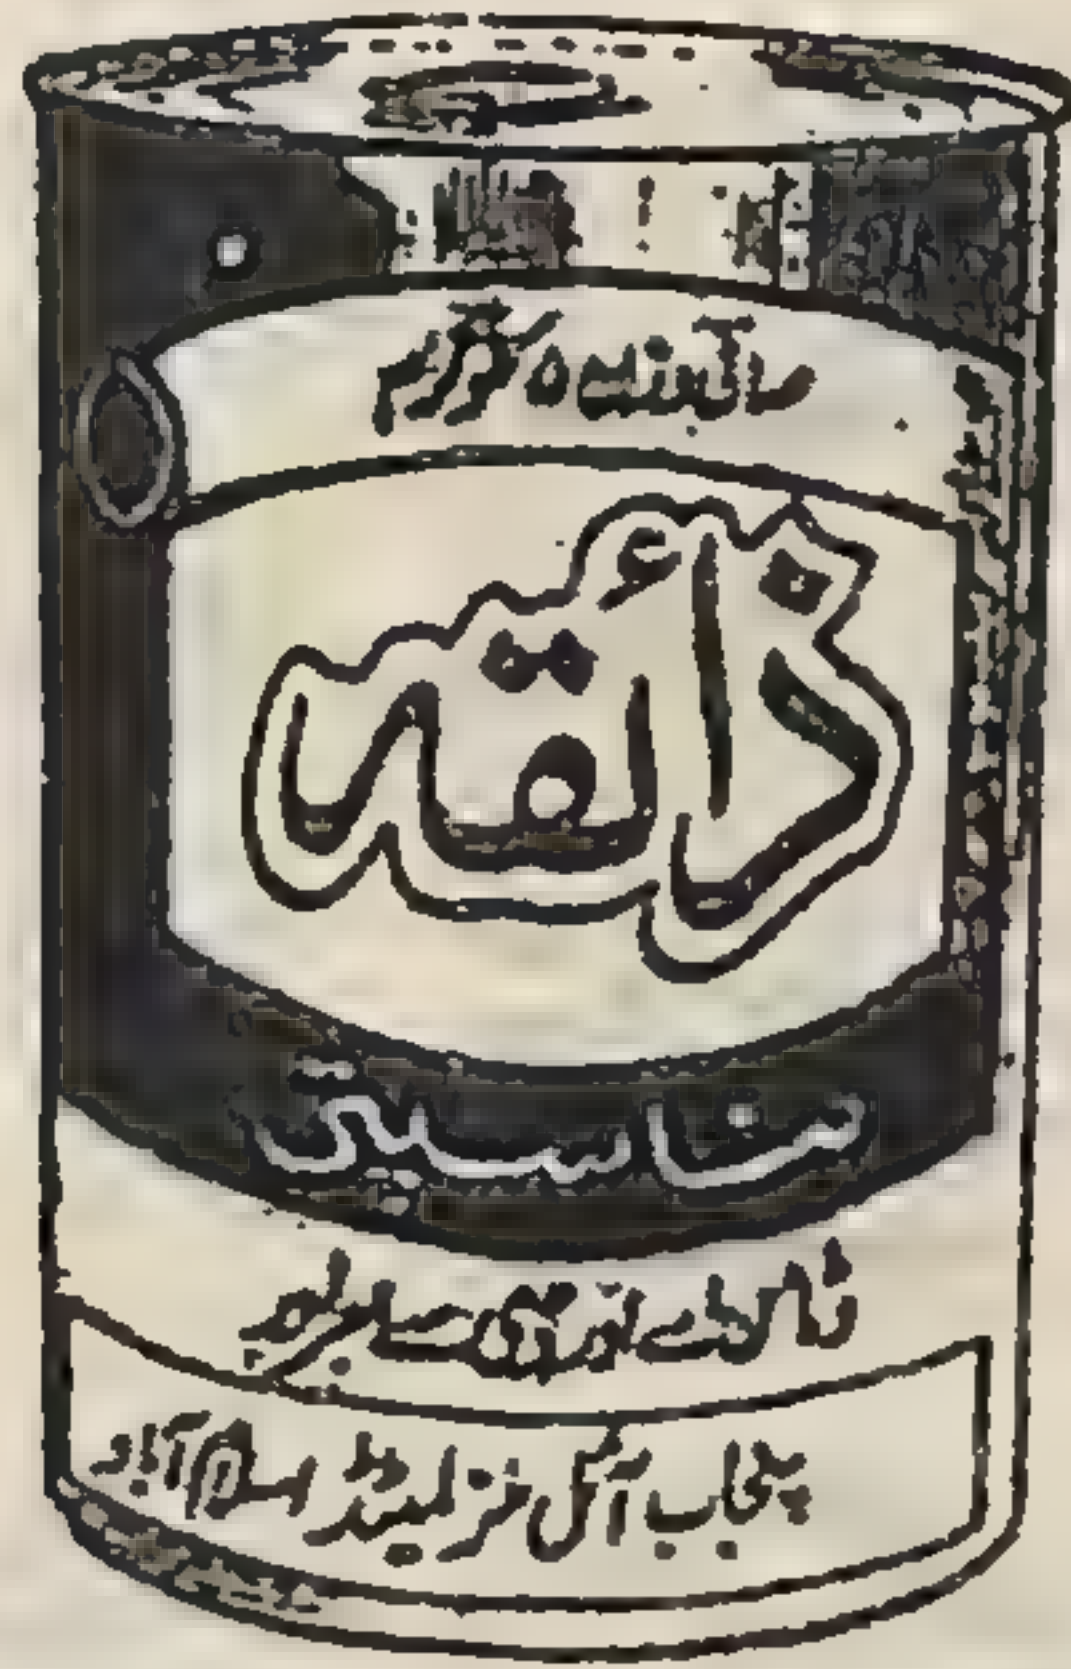 صافی وزن ۵ کلوگرام
ذائقہ
بناسپتی
وٹامن اے اور ڈی سے بھرپور
پنجاب آئل ملز لمیٹڈ اسلام آباد